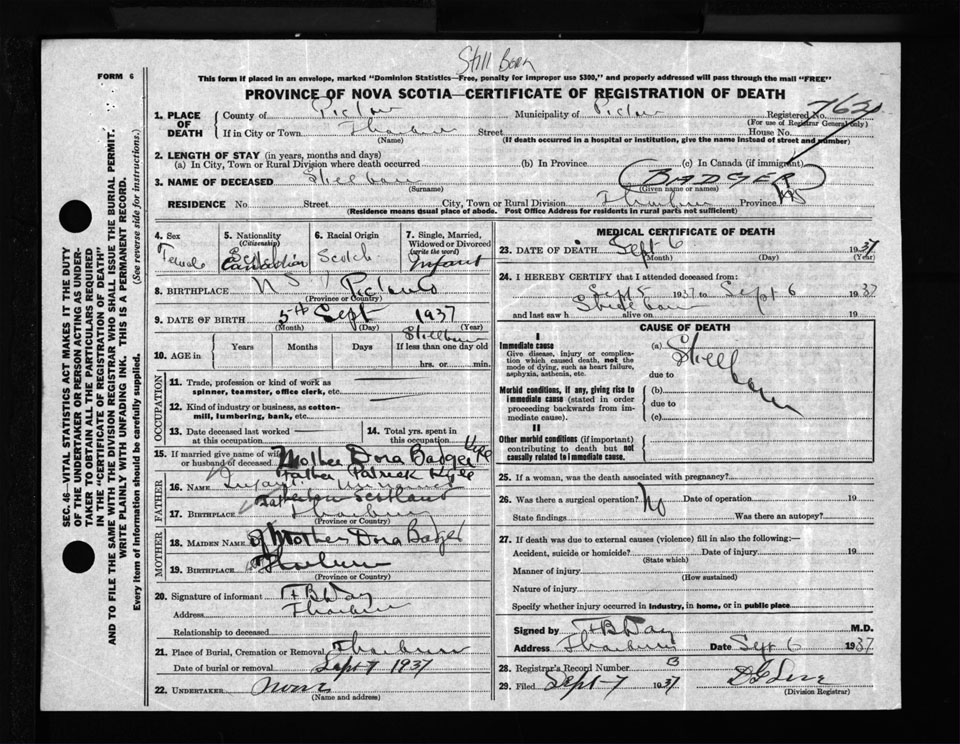 Still Born
FORM 6
This form if placed in an envelope, marked "Dominion Statistics—Free, penalty for improper use $300," and properly addressed will pass through the mail "FREE"
PROVINCE OF NOVA SCOTIA—CERTIFICATE OF REGISTRATION OF DEATH
1. PLACE OF DEATH County of Pictou Municipality of Pictou Registered No.
(For use of Registrar General only)
If in City or Town Thorburn Street House No.
(Name) (If death occurred in a hospital or institution, give the name instead of street and number)
2. LENGTH OF STAY (in years, months and days)
(a) In City, Town or Rural Division where death occurred (b) In Province (c) In Canada (if immigrant)
3. NAME OF DECEASED Stillborn BADGER
(Surname) (Given name or names)
RESIDENCE No Street City, Town or Rural Division Thorburn Province NS
(Residence means usual place of abode. Post Office Address for residents in rural parts not sufficient)
4. Sex Female
5. Nationality (Citizenship) Canadian
6. Racial Origin Scotch
7. Single, Married, Widowed or Divorced (write the word) Infant
8. BIRTHPLACE N S Pictou Co
(Province or Country)
9. DATE OF BIRTH 5th Sept 1937
(Month) (Day) (Year)
Stillborn
10. AGE in Years Months Days If less than one day old
hrs. or min.
OCCUPATION
11. Trade, profession or kind of work as spinner, teamster, office clerk, etc.
12. Kind of industry or business, as cotton-mill, lumbering, bank, etc.
13. Date deceased last worked at this occupation
14. Total yrs. spent in this occupation
15. If married give name of wife or husband of deceased Mother Dora Badger
Father Patrick
FATHER
16. NAME
Scotland
17. BIRTHPLACE Thorburn
(Province or Country)
MOTHER
18. MAIDEN NAME of Mother Dora Badger
19. BIRTHPLACE Thorburn
(Province or Country)
20. Signature of informant H B Day
Address Thorburn
Relationship to deceased
21. Place of Burial, Cremation or Removal Thorburn
Date of burial or removal Sept 7 1937
22. UNDERTAKER none
(Name and address)
MEDICAL CERTIFICATE OF DEATH
23. DATE OF DEATH Sept 6 1937
(Month) (Day) (Year)
24. I HEREBY CERTIFY that I attended deceased from:
Sept 5 1937 to Sept 6 1937
and last saw h Stillborn alive on 19
CAUSE OF DEATH
I
Immediate cause (a) Stillborn
Give disease, injury or complication which caused death, not the mode of dying, such as heart failure, asphyxia, asthenia, etc.
due to
Morbid conditions, if any, giving rise to immediate cause (stated in order proceeding backwards from immediate cause).
(b)
due to
(c)
II
Other morbid conditions (if important) contributing to death but not causally related to immediate cause.
25. If a woman, was the death associated with pregnancy?
26. Was there a surgical operation? No Date of operation 19
State findings Was there an autopsy?
27. If death was due to external causes (violence) fill in also the following:—
Accident, suicide or homicide? Date of injury 19
(State which)
Manner of injury
(How sustained)
Nature of injury
Specify whether injury occurred in industry, in home, or in public place
Signed by H B Day M.D.
Address Thorburn Date Sept 6 1937
28. Registrar's Record Number
29. Filed Sept 7 1937
(Division Registrar)
SEC. 46—VITAL STATISTICS ACT MAKES IT THE DUTY
OF THE UNDERTAKER OR PERSON ACTING AS UNDERTAKER TO OBTAIN ALL THE PARTICULARS REQUIRED
IN THE "CERTIFICATE OF REGISTRATION OF DEATH"
AND TO FILE THE SAME WITH THE DIVISION REGISTRAR WHO SHALL ISSUE THE BURIAL PERMIT.
WRITE PLAINLY WITH UNFADING INK. THIS IS A PERMANENT RECORD.
Every item of Information should be carefully supplied. (See reverse side for instructions.)